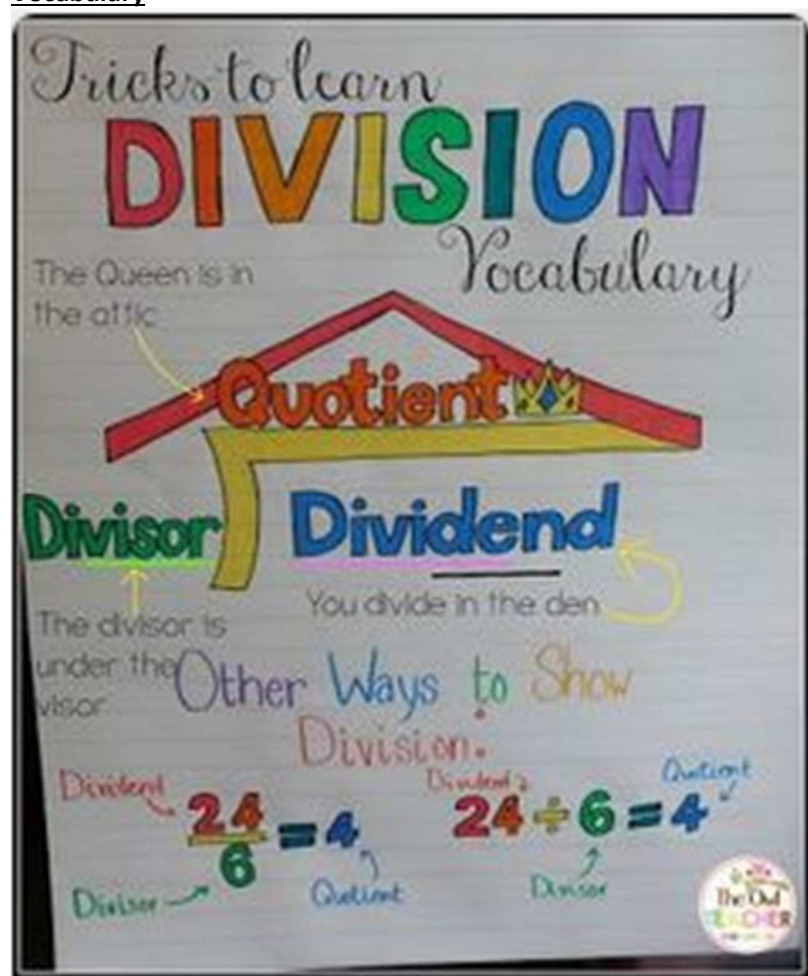 Vocabulary
Tricks to learn
DIVISION
Vocabulary
The Queen is in
the attic
Quotient
Divisor
Dividend
You divide in the den
The divisor is
under the
visor
Other Ways to Show
Division.
Dividend
24
6
= 4
Divisor
Quotient
Dividend
Quotient
24 ÷ 6 = 4
Divisor
The Owl
TEACHER